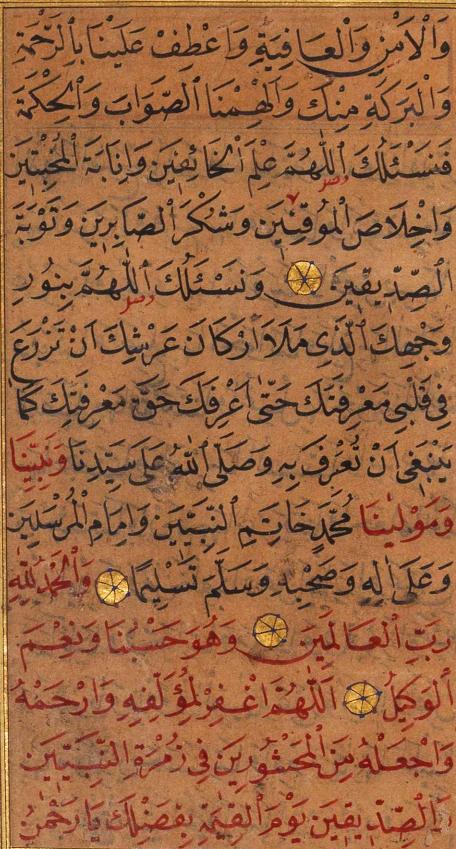 وَالْاَمْنِ وَالْعَافِيَةِ وَاعْطِفْ عَلَيْنَا بِالرَّحْمَةِ
وَالْبَرَكَةِ مِنْكَ وَاَلْهِمْنَا الصَّوَابَ وَالْحِكْمَةَ
فَنَسْئَلُكَ اللّٰهُمَّ عِلْمَ الْخَائِفِينَ وَاِنَابَةَ الْمُخْبِتِينَ
وَاِخْلَاصَ الْمُوقِنِينَ وَشُكْرَ الصَّابِرِينَ وَتَوْبَةَ
الصِّدِّيقِينَ وَنَسْئَلُكَ اللّٰهُمَّ بِنُورِ
وَجْهِكَ الَّذِى مَلَاَ اَرْكَانَ عَرْشِكَ اَنْ تَزْرَعَ
فِى قَلْبِى مَعْرِفَتَكَ حَتّٰى اَعْرِفَكَ حَقَّ مَعْرِفَتِكَ كَمَا
يَنْبَغِى اَنْ تُعْرَفَ بِهِ وَصَلَّى اللّٰهُ عَلٰى سَيِّدِنَا وَنَبِيِّنَا
وَمَوْلٰينَا مُحَمَّدٍ خَاتِمِ النَّبِيِّينَ وَاِمَامِ الْمُرْسَلِينَ
وَعَلٰى اٰلِهِ وَصَحْبِهِ وَسَلَّمَ تَسْلِيمًا وَالْحَمْدُ لِلّٰهِ
رَبِّ الْعَالَمِينَ وَهُوَ حَسْبُنَا وَنِعْمَ
الْوَكِيلُ اَللّٰهُمَّ اغْفِرْ لِمُؤَلِّفِهِ وَارْحَمْهُ
وَاجْعَلْهُ مِنَ الْمَحْشُورِينَ فِى زُمْرَةِ النَّبِيِّينَ
وَالصِّدِّيقِينَ يَوْمَ الْقِيٰمَةِ بِفَضْلِكَ يَا رَحْمٰنُ